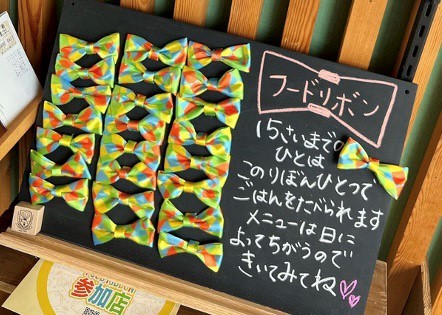 フードリボン
15さいまでの
ひとは
このりぼんひとつで
ごはんをたべられます
メニューは日に
よってちがうので
きいてみてね
参加店